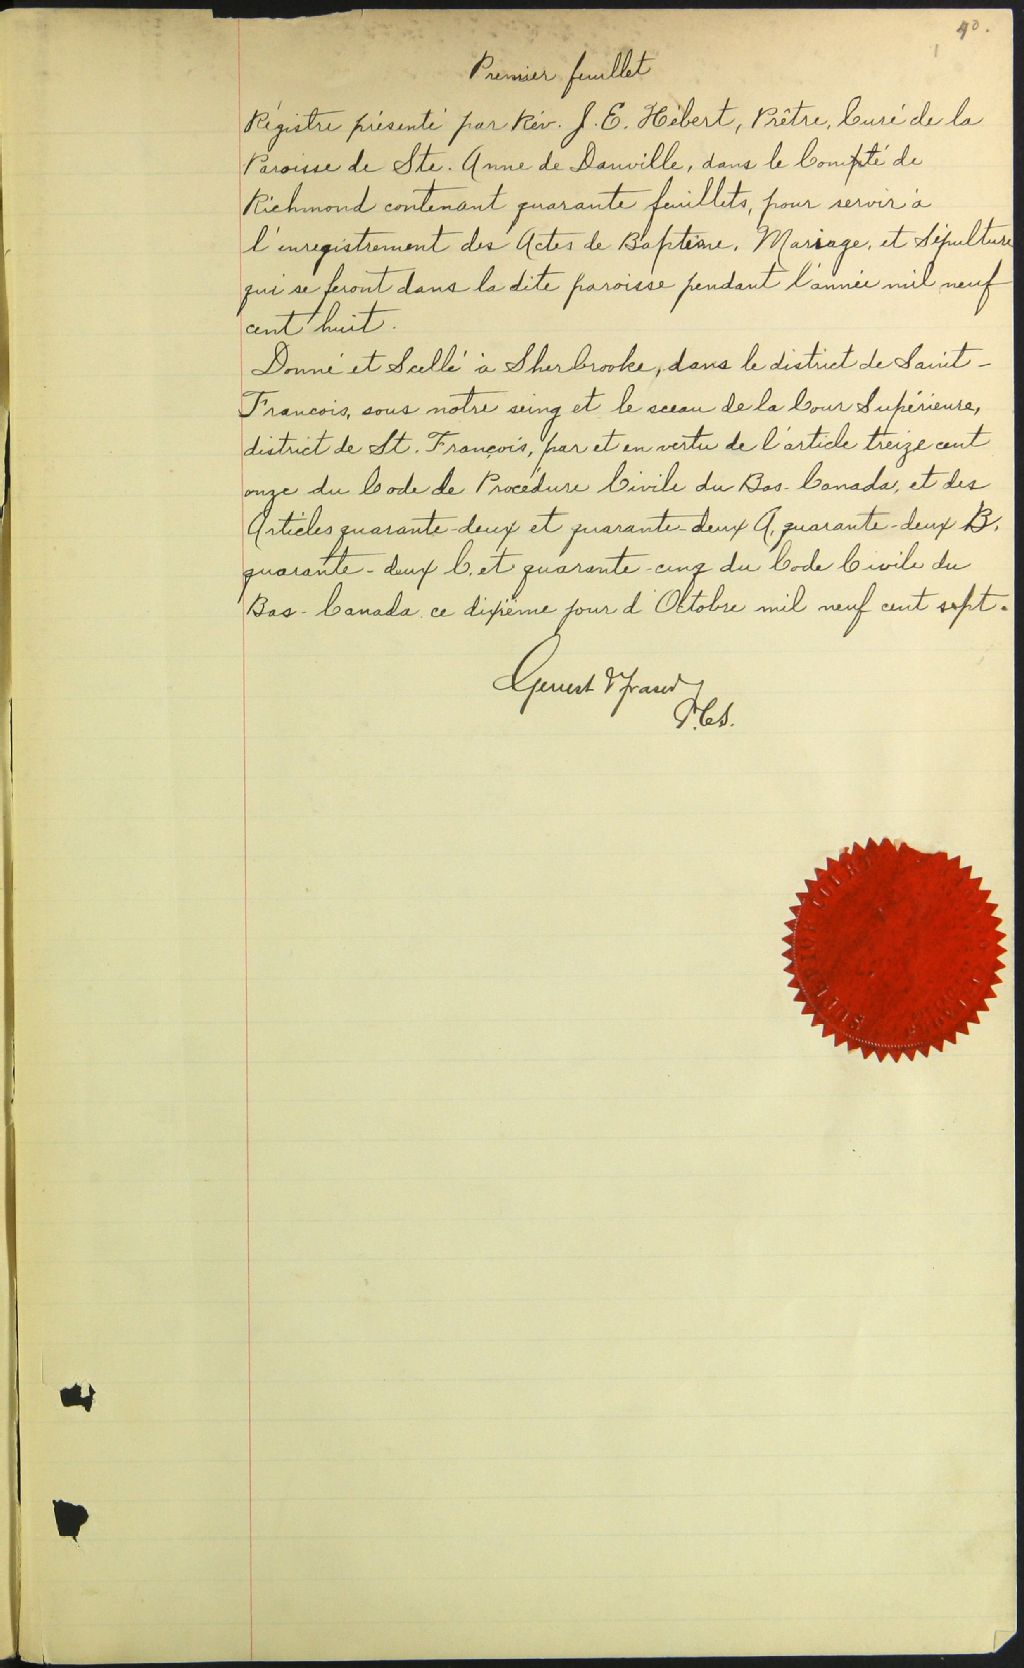 40.
Premier feuillet
Régistre présenté par Rév. J. E. Hébert, Prêtre, Curé de la
Paroisse de Ste. Anne de Danville, dans le Compté de
Richmond contenant quarante feuillets, pour servir à
l'enregistrement des Actes de Baptême, Mariage, et Sépulture
qui se feront dans la dite paroisse pendant l'année mil neuf
cent huit.
Donné et Scellé à Sherbrooke, dans le district de Saint-
François, sous notre seing et le sceau de la Cour Supérieure,
district de St. François, par et en vertu de l'article treize cent
onze du Code de Procédure Civile du Bas-Canada, et des
Articles quarante-deux et quarante-deux A, quarante-deux B,
quarante-deux C, et quarante-cinq du Code Civile du
Bas-Canada ce dixième jour d'Octobre mil neuf cent sept.
Genest & Fraser
P.C.S.
SUPERIOR COURT